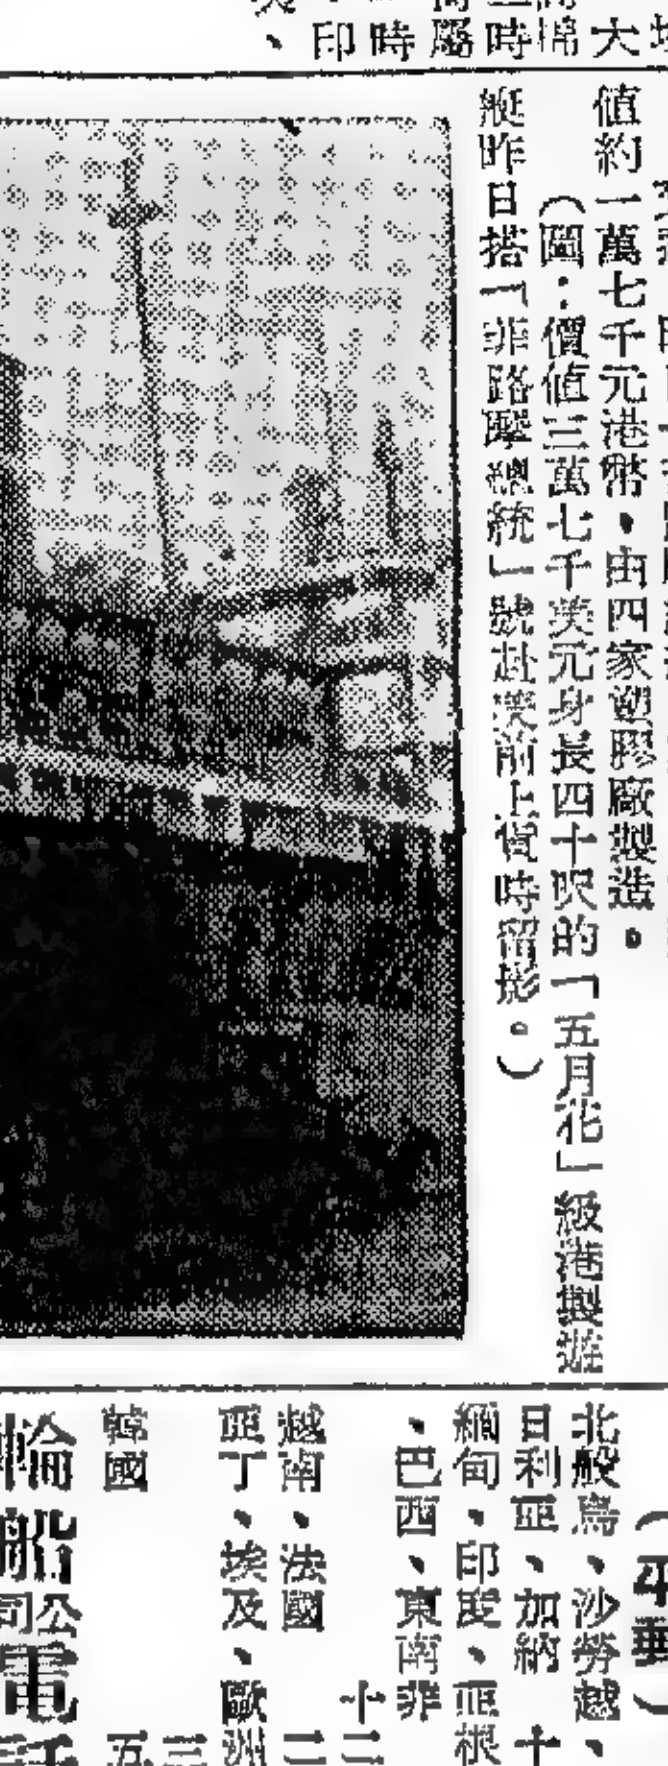 大
時
屬
時
印
、
值約一萬七千元港幣，由四家塑膠廠製造。
（圖：價值三萬七千美元身長四十呎的「五月花」級港製遊
艇昨日搭「菲路摩總統」號赴美前上貨時留影。）
（平郵）
北般鳥、沙勞越、
日利亞、加納　十
緬甸、印度、亞根
、巴西、東南非
十二
越南、法國　二
亞丁、埃及、歐洲
三
韓國　五
輪船公司電話